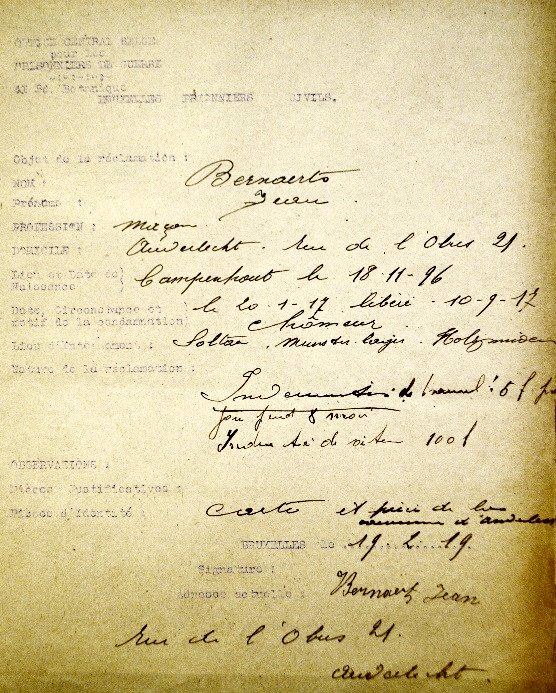 OFFICE CENTRAL BELGE
pour les
PRISONNIERS DE GUERRE
41 Bd. Botanique
BRUXELLES PRIONNIERS CIVILS.
Objet de la réclamation :
NOM : Bernaerts
Prénoms : Jean
PROFESSION : maçon
DOMICILE : Anderlecht. Rue de l'Obus 21.
Lieu et Date de Naissance Campenhout le 18-11-96
Date, Circonstance et motif de la condamnation le 20-1-17 libéré - 10-9-17
Chômeur
Lieu d'Internement : Soltau, Munsterlager, Holzminden
Nature de la réclamation :
Indemnité de travail : 5 f
pendant 8 mois
Indemnité de 100 f
OBSERVATIONS :
Pièces Justificatives :
Pièces d'identité : carte et pièce de la
commune d'Anderlecht
BRUXELLES le 19.2.19.
Signature : Bernaert Jean
Adresse actuelle :
Rue de l'Obus 21.
Anderlecht.